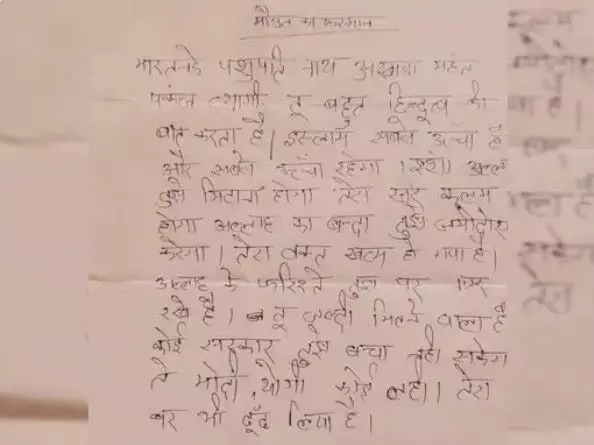 मौत का फरमान
मारतनडे पशुपति नाथ अखाड़ा महंत
पंकज त्यागी तू बहुत हिन्दुत्व की
बात करता है। इस्लाम सबसे ऊँचा है
और सबसे ऊँचा रहेगा। इंशा अल्ला
तुझे मिटाना होगा तेरा सर कलम
होगा अल्लाह का बन्दा तुझे जमीदोस
करेगा। तेरा वक्त खत्म हो गया है।
अल्लाह के फरिश्ते तुझ पर नजर
रखे है। तू जल्दी मिटने वाला है
कोई सरकार तुझे बचा नही सकेगा
ये मोदी, योगी कोई नही। तेरा
घर भी ढूँढ लिया है।